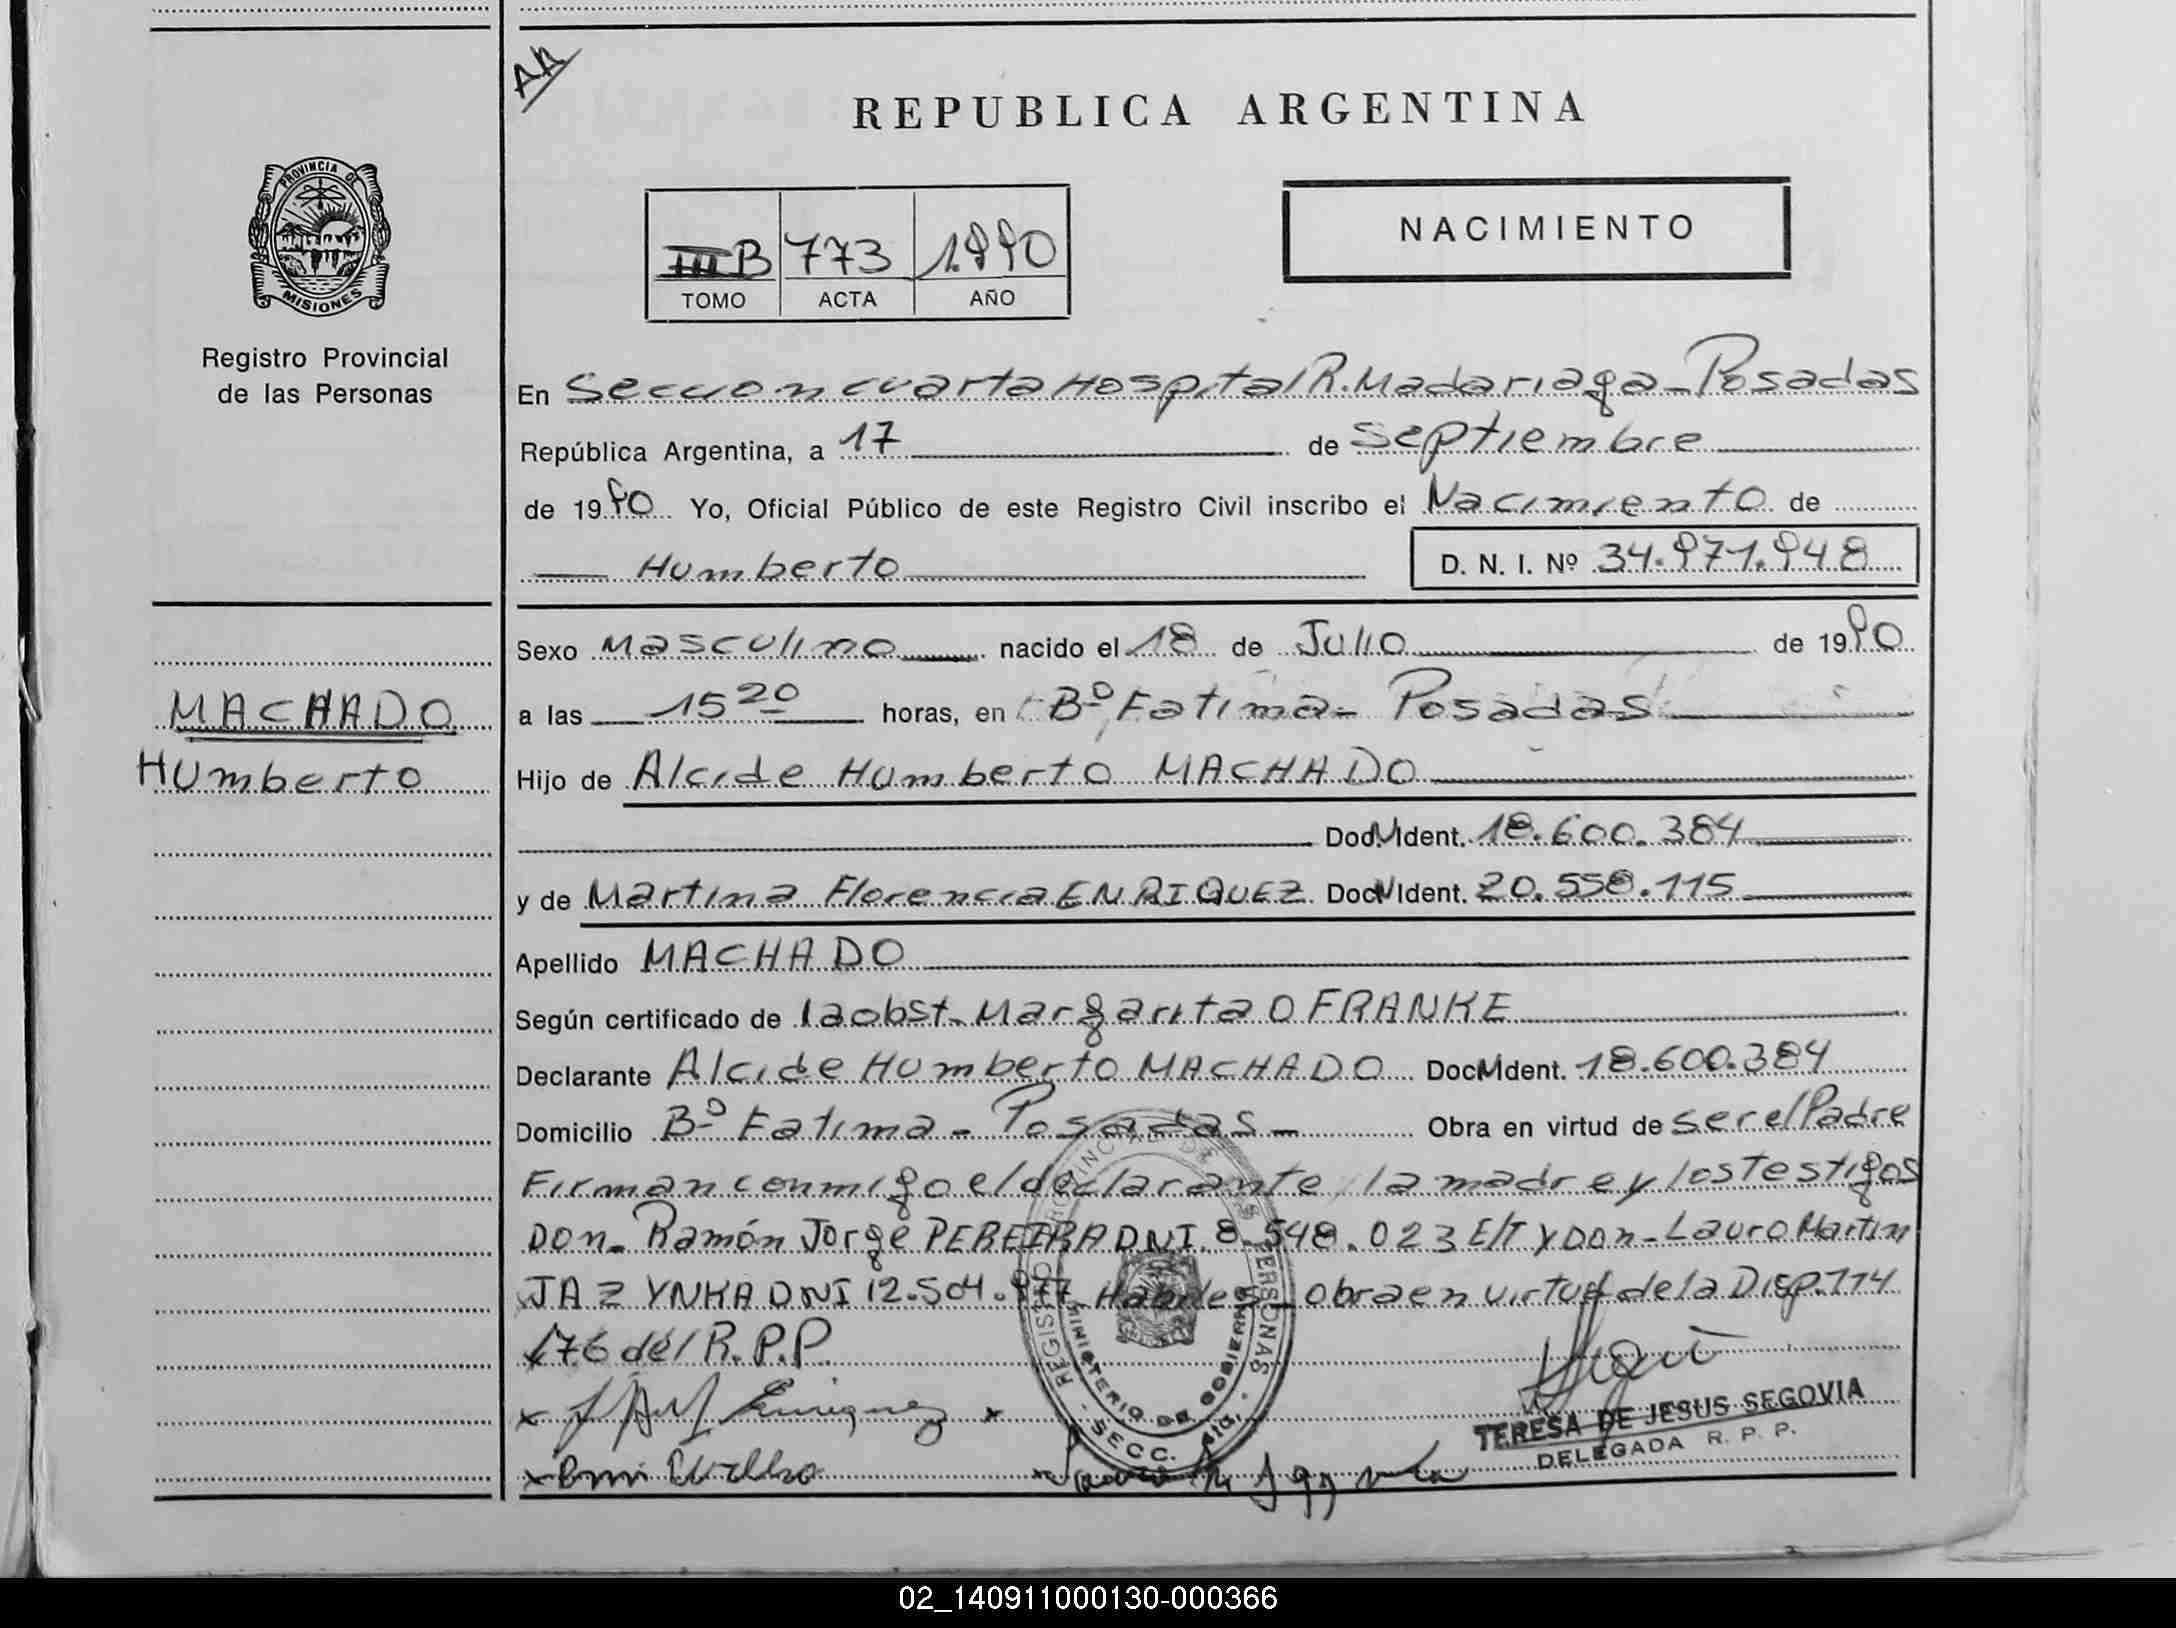 AA
REPUBLICA ARGENTINA
PROVINCIA DE
MISIONES
Registro Provincial
de las Personas
III B 773 1990
TOMO ACTA AÑO
NACIMIENTO
En Seccion cuarta Hospital R. Madariaga - Posadas
República Argentina, a 17 de Septiembre
de 1990 Yo, Oficial Público de este Registro Civil inscribo el Nacimiento de
Humberto D. N. I. Nº 34.971.948
Sexo Masculino nacido el 18 de Julio de 1990
MACHADO
a las 15 20 horas, en Bº Fatima - Posadas
Humberto
Hijo de Alcide Humberto MACHADO
Doc. Ident. 18.600.384
y de Martina Florencia ENRIQUEZ Doc. Ident. 20.558.115
Apellido MACHADO
Según certificado de la obst. Margarita O FRANKE
Declarante Alcide Humberto MACHADO Doc. Ident. 18.600.384
Domicilio Bº Fatima - Posadas - Obra en virtud de ser el Padre
Firman conmigo el declarante la madre y los testigos
Don. Ramón Jorge PEREIRA DNI. 8.548.023 E/T y Don - Lauro Martin
JAZYNKA DNI 12.504.977 Habiles - Obra en virtud de la Disp. 114
176 del R.P.P.
REGISTRO PROVINCIAL DE LAS PERSONAS
MINISTERIO DE GOBIERNO
SECC. 4ta.
x Enriquez x
TERESA DE JESUS SEGOVIA
DELEGADA R. P. P.
02_140911000130-000366